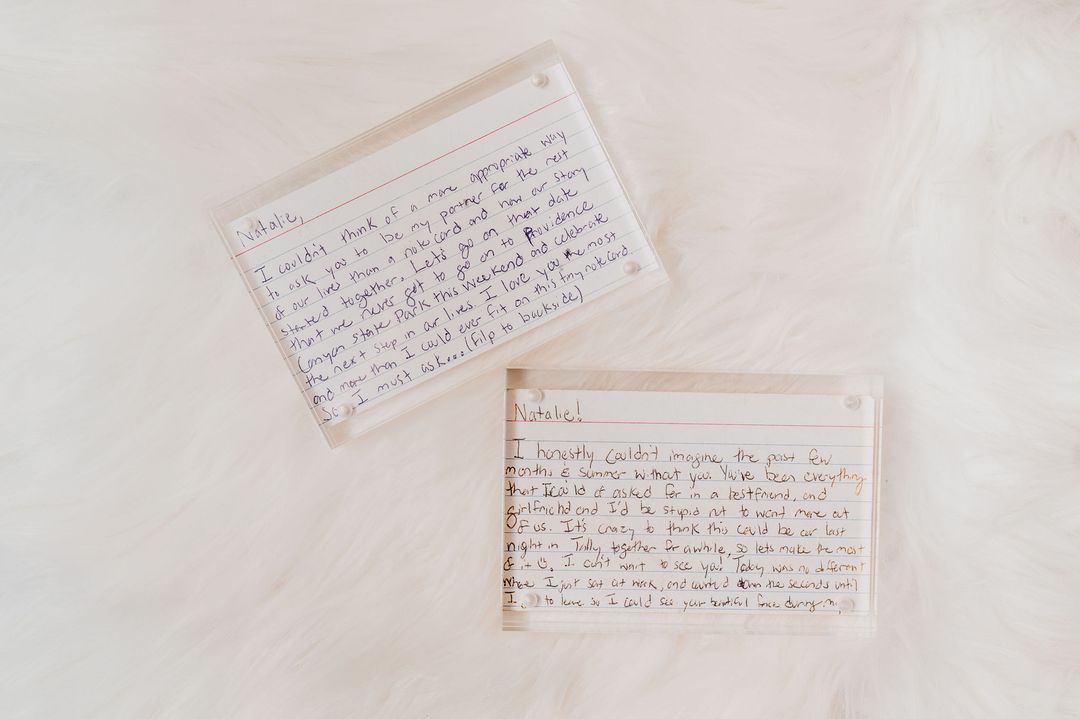 Natalie,
I couldn't think of a more appropriate way
to ask you to be my partner for the rest
of our lives than a notecard and have our story
started together. Let's go on that date
that we never got to go on to Providence
Canyon State Park this weekend and celebrate
the next step in our lives. I love you the most
and more than I could ever fit on this tiny notecard.
So I must ask... (flip to backside)
Natalie!
I honestly couldn't imagine the past few
months & summer without you. You've been everything
that I could of asked for in a bestfriend, and
girlfriend and I'd be stupid not to want more out
of us. It's crazy to think this could be our last
night in Tally together for awhile, so lets make the most
of it ☺. I can't wait to see ya! Today was no different
where I just sat at work, and counted down the seconds until
I to leave so I could see your beautiful face during